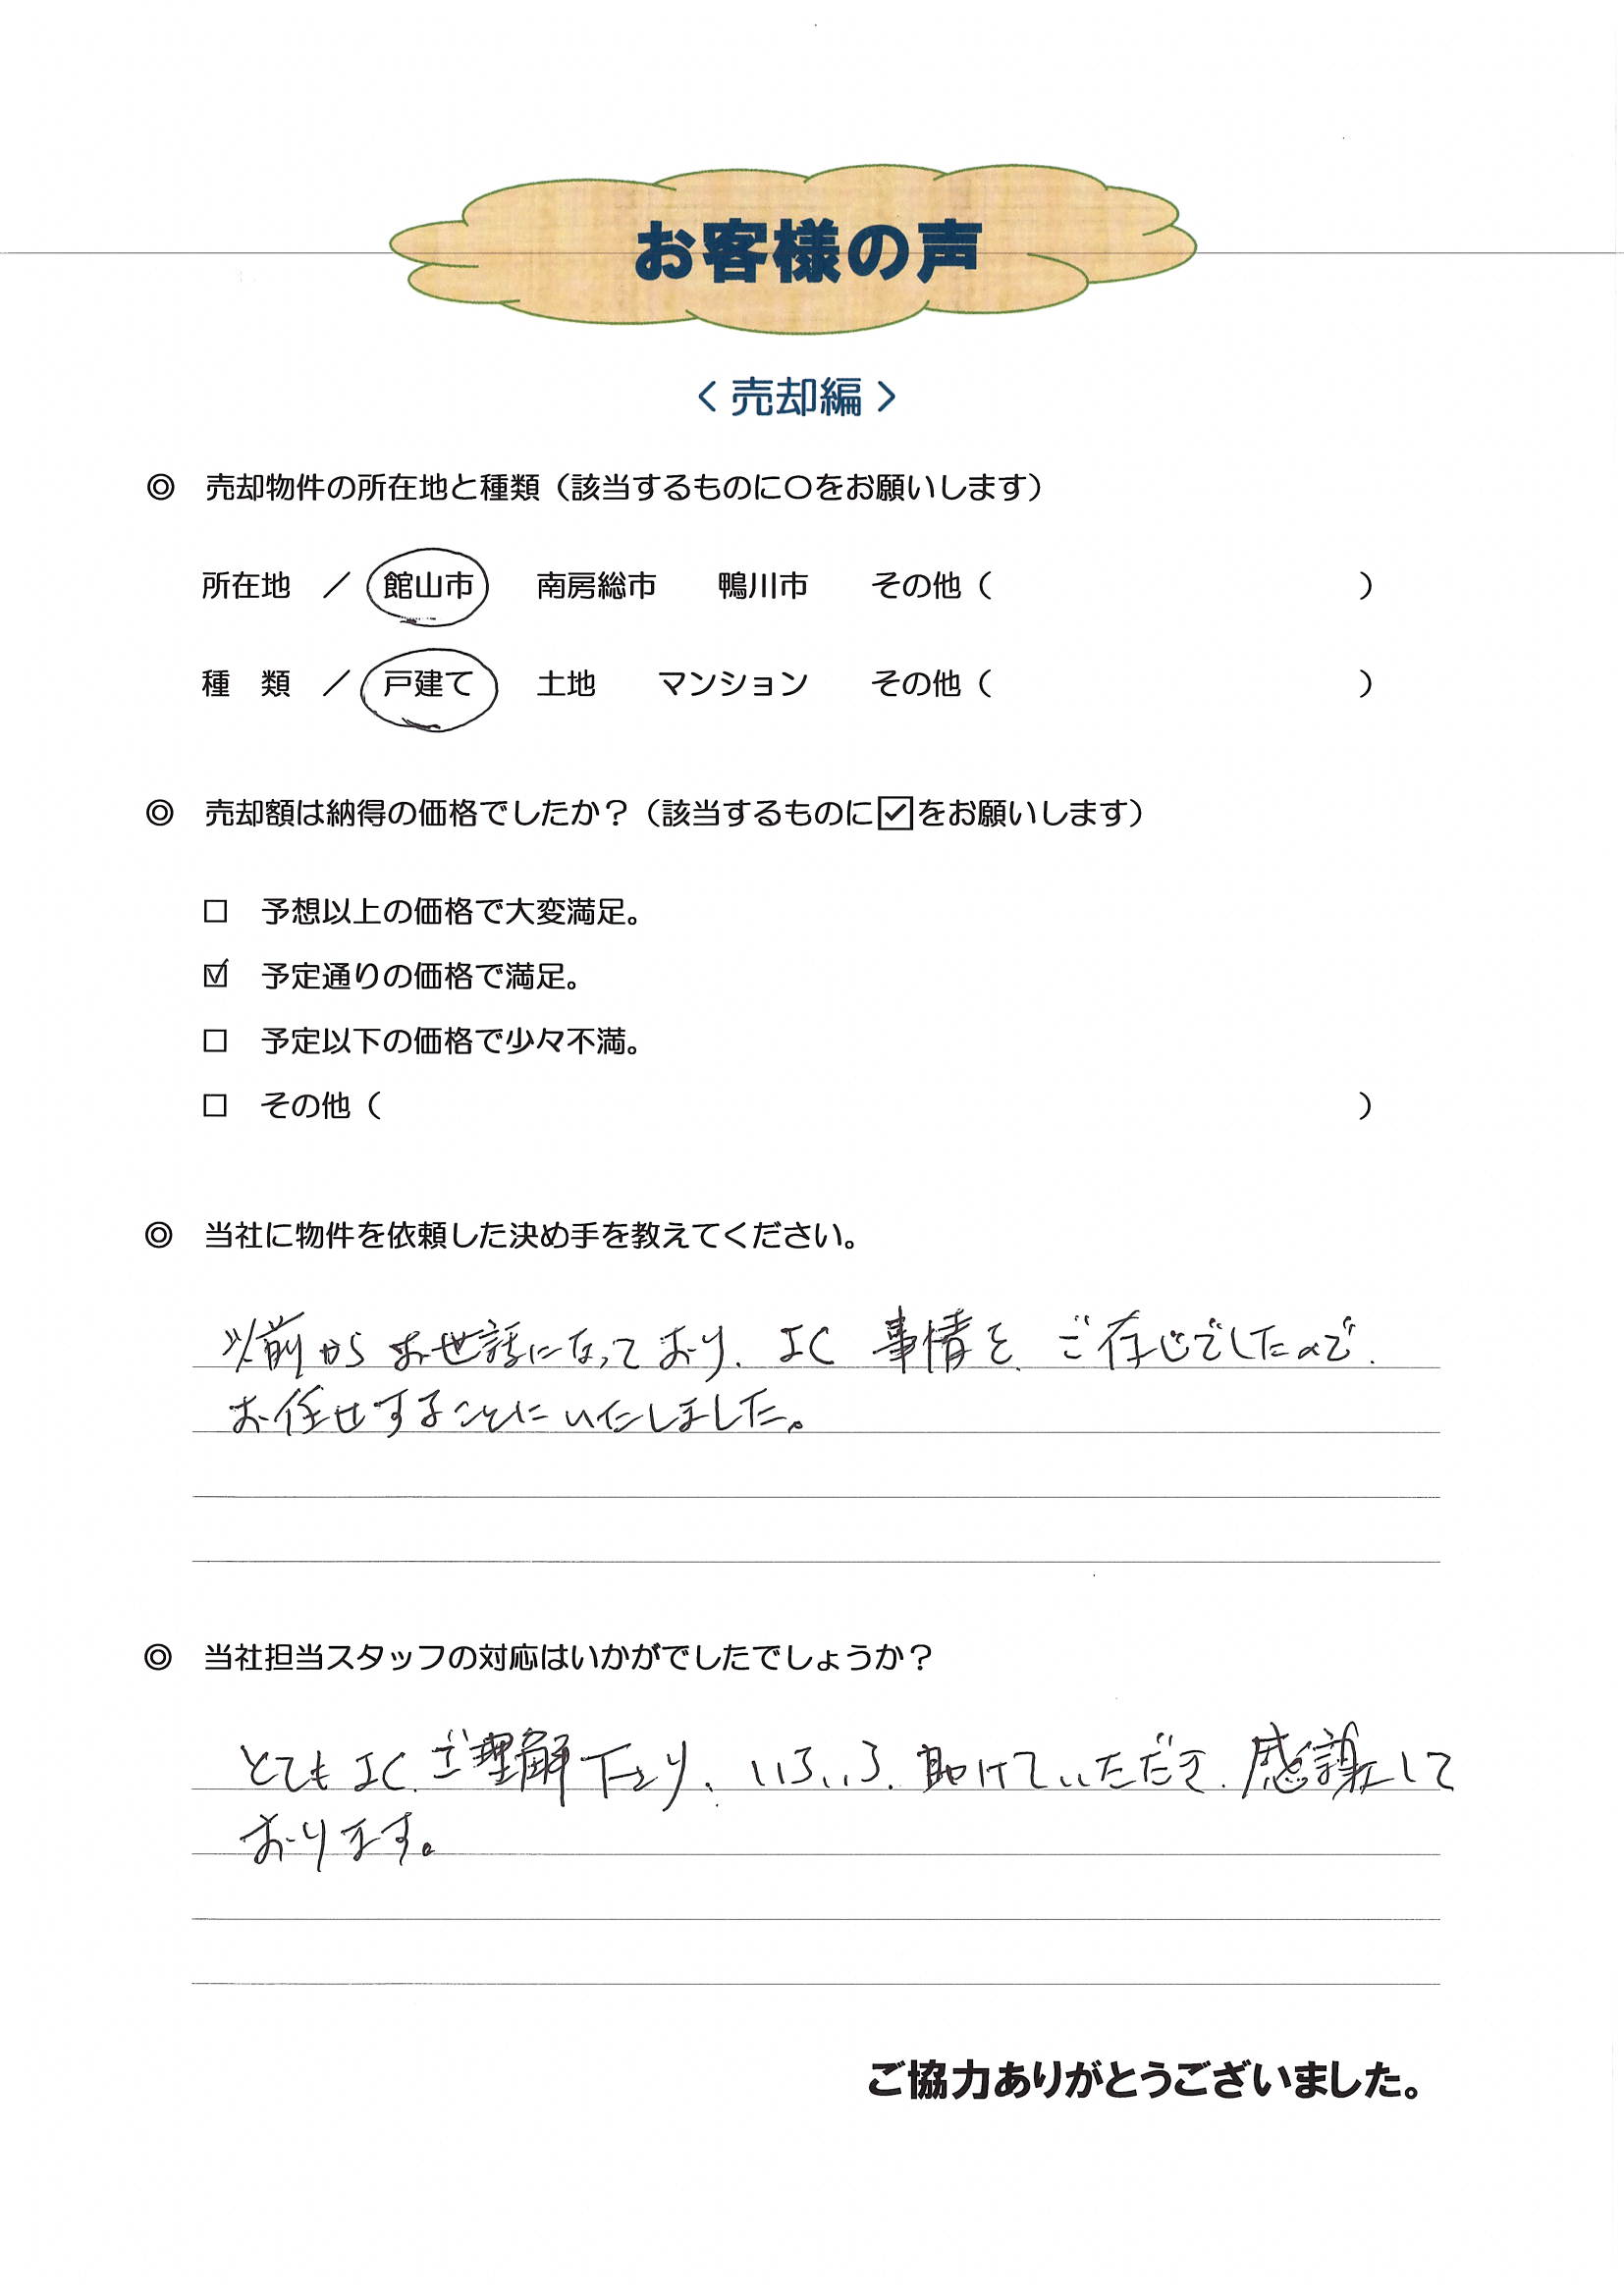 お客様の声
＜ 売却編 ＞
◎ 売却物件の所在地と種類（該当するものに○をお願いします）
所在地 ／ 館山市 南房総市 鴨川市 その他（ ）
種 類 ／ 戸建て 土地 マンション その他（ ）
◎ 売却額は納得の価格でしたか？（該当するものに☑をお願いします）
□ 予想以上の価格で大変満足。
☑ 予定通りの価格で満足。
□ 予定以下の価格で少々不満。
□ その他（ ）
◎ 当社に物件を依頼した決め手を教えてください。
以前からお世話になっており、よく事情を、ご存じでしたので、
お任せすることにいたしました。
◎ 当社担当スタッフの対応はいかがでしたでしょうか？
とてもよく、ご理解下さり、いろいろ、助けていただき、感謝して
おります。
ご協力ありがとうございました。